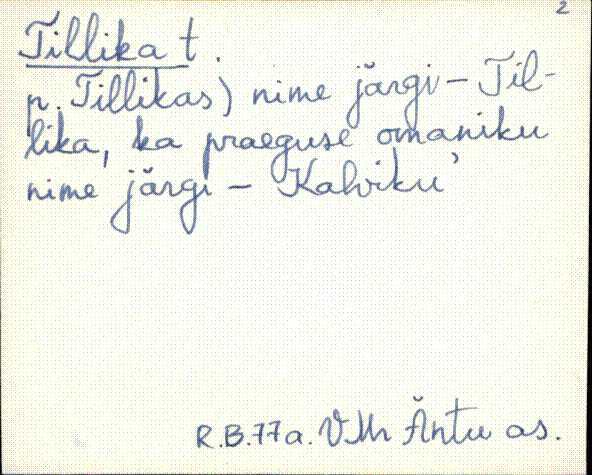 2
Tillika t.
n. Tillikas) nime järgi – Til-
lika, ka praeguse omaniku
nime järgi – Kalviku'
R.B.77a. VMr Äntu as.